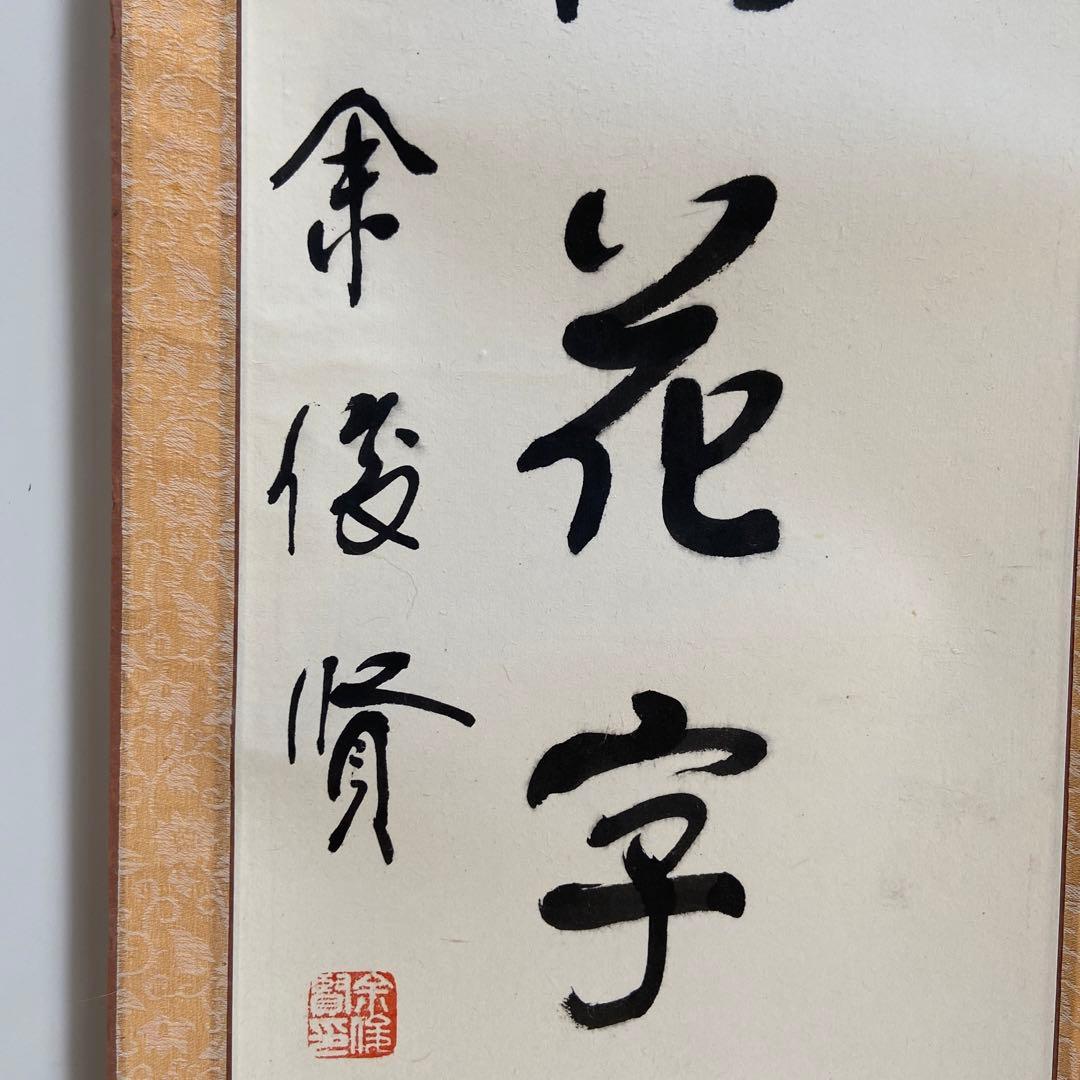 花字
余俊賢
余俊賢印